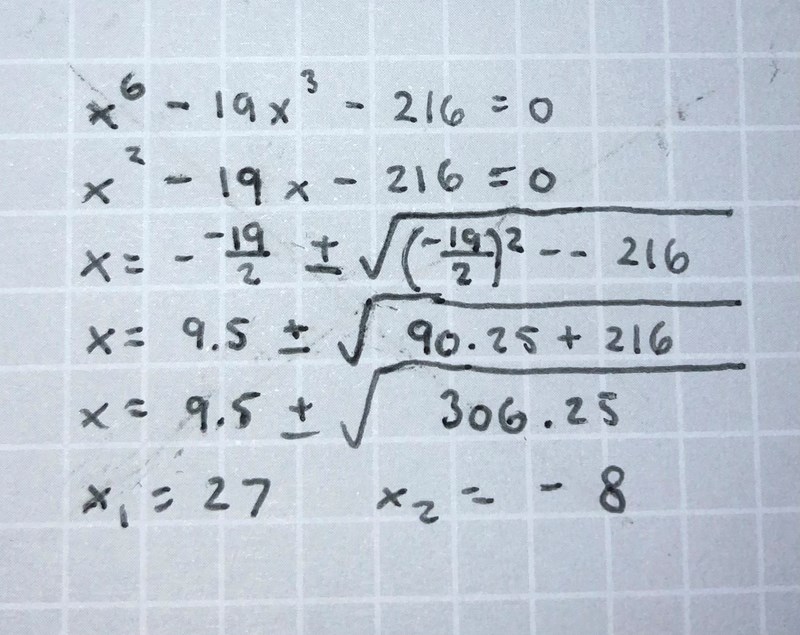 x⁶ - 19x³ - 216 = 0
x² - 19x - 216 = 0
x = - -19/2 ± √((-19/2)² - - 216)
x = 9.5 ± √(90.25 + 216)
x = 9.5 ± √(306.25)
x₁ = 27 x₂ = - 8